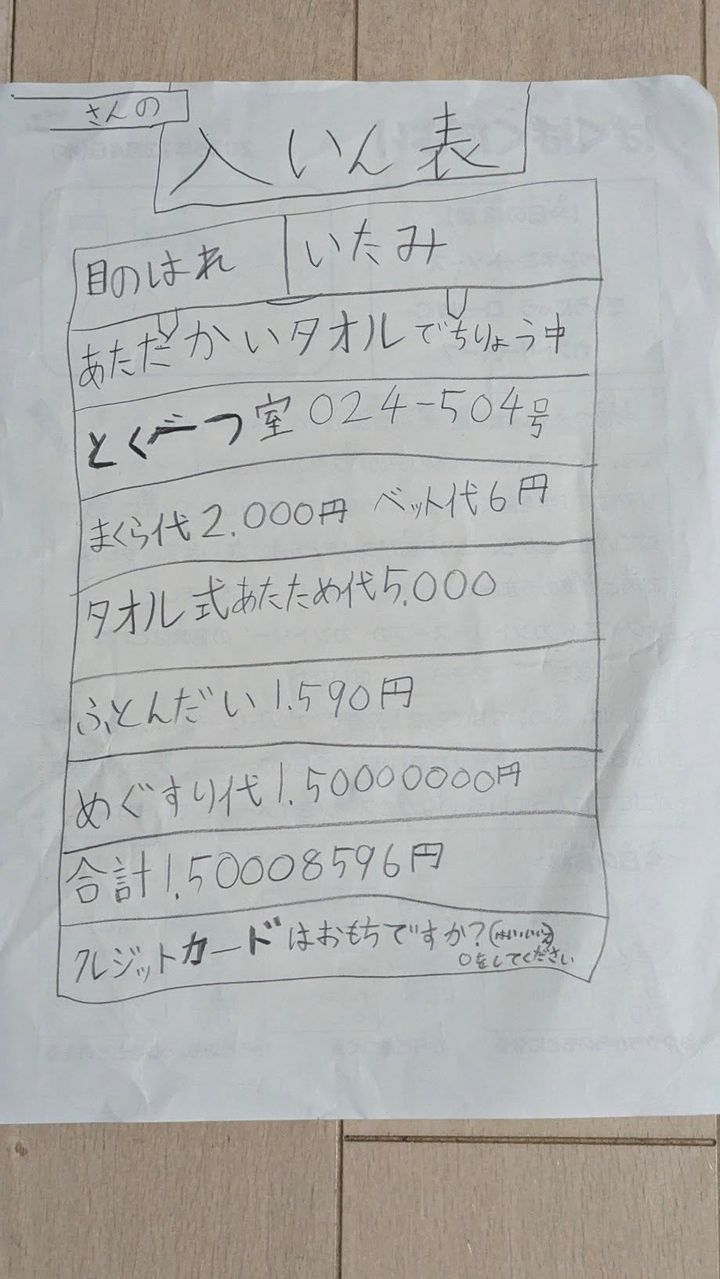 さんの
入いん表
目のはれ いたみ
あたたかいタオルでちりょう中
とくべつ室024-504号
まくら代2.000円 ベット代6円
タオル式あたため代5.000
ふとんだい1.590円
めぐすり代1.50000000円
合計1.50008596円
クレジットカードはおもちですか?(はい いいえ)
○をしてください